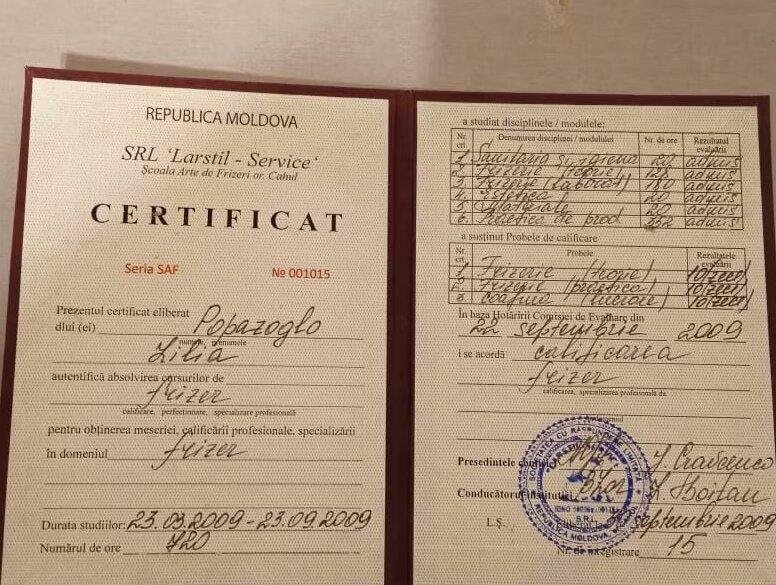 REPUBLICA MOLDOVA
SRL 'Larstil - Service'
Școala Arte de Frizeri or. Cahul
CERTIFICAT
Seria SAF № 001015
Prezentul certificat eliberat
dlui (ei) Popazoglo
numele, prenumele
Zilia
autentifică absolvirea cursurilor de
frizer
calificare, perfecționare, specializare profesională
pentru obținerea meseriei, calificării profesionale, specializării
în domeniul frizer
Durata studiilor: 23.03.2009 - 23.09.2009
Numărul de ore 720
a studiat disciplinele / modulele:
Nr. crt. Denumirea disciplinei / modulului Nr. de ore Rezultatul evaluării
1. Sanitaria și igiena 20 admis
2. Frizerie (teorie) 128 admis
3. Frizerie (laborat) 180 admis
4. Estetica 20 admis
5. Materiale 20 admis
6. Practica de prod 352 admis
a susținut Probele de calificare
Nr. crt. Probele Rezultatele evaluării
1. Frizerie (teorie) 10 (zece)
2. Frizerie (practica) 10 (zece)
3. Coafura 10 (zece)
În baza Hotărîrii Comisiei de Evaluare din
22 septembrie 2009
i se acordă calificarea
frizer
calificarea, specializarea profesională de
Președintele
Conducătorul instituției
L.Ș. septembrie 2009
Nr. de înregistrare 15
SOCIETATEA CU RĂSPUNDERE LIMITATĂ
REPUBLICA MOLDOVA
S.R.L.